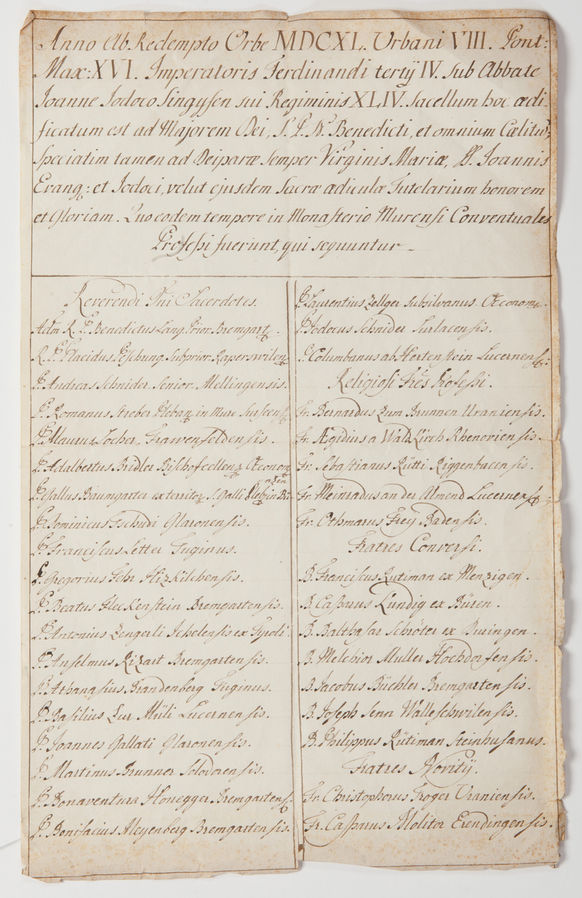 Anno Ab Redempto Orbe MDCXL. Urbani VIII. Pont:
Max: XVI. Imperatoris Ferdinandi tertij IV. Sub Abbate
Joanne Jodoco Singysen sui Regiminis XLIV. Sacellum hoc ædi
ficatum est ad Majorem Dei, S. P. N. Benedicti, et omnium Cælitum,
Speciatim tamen ad Deiparæ Semper Virginis Mariæ, SS. Joannis
Evang: et Jodoci, velut ejusdem Sacræ ædiculæ Tutelarium honorem
et Gloriam. Quo eodem tempore in Monasterio Murensi Conventuales
Professi fuerunt, qui sequuntur
Reverendi Sacerdotes.
R. P. Benedictus Lang Prior Bremgart.
R. P. Placidus Subprior
P. Andreas Schnider Senior Mellingensis.
P. Romanus Streber in Mure
P. Maurus Locher Frawenfeldensis.
P. Adalbertus Bridler Bischofcellens. Œconom
P. Gallus Baumgarter ex territor. S. Galli
P. Dominicus Tschudi Glaronensis.
P. Franciscus Letter Tuginus.
P. Gregorius Hitzkilchensis.
P. Beatus Fleckenstein Bremgartensis.
P. Antonius Zengerli ex Tyroli
P. Anselmus Bremgartensis.
P. Athanasius Brandenberg Tuginus.
P. Basilius Zur Müli Lucernensis.
P. Joannes Gallati Glaronensis.
P. Martinus Brunner Solodorensis.
P. Bonaventura Honegger Bremgartens.
P. Bonifacius Meyenberg Bremgartensis.
P. Laurentius Zellger Subsilvanus. Œconom.
P. Jodocus Schnider Surlacensis.
P. Columbanus ab Hertenstein Lucernens:
Religiosi Frēs Professi.
Fr. Bernardus Zum Brunnen Uraniensis.
Fr. Ægidius a Waldkirch Rhenoviensis.
Fr. Sebastianus Rütti Riggenbacensis.
Fr. Meinradus an der Almend Lucernens:
Fr. Othmarus Frey Badensis.
Fratres Conversi.
B. Franciscus Rutiman ex Menzigen.
B. Casparus Kundig ex Büren.
B. Balthasar Schröter ex
B. Melchior Muller Hochdorfensis.
B. Jacobus Büchler Bremgartensis.
B. Joseph Senn Walleschwilensis.
B. Philippus Rütiman Steinhusanus.
Fratres Novitij.
Fr. Christophorus Troger Uraniensis.
Fr. Casparus Molitor Erendingensis.